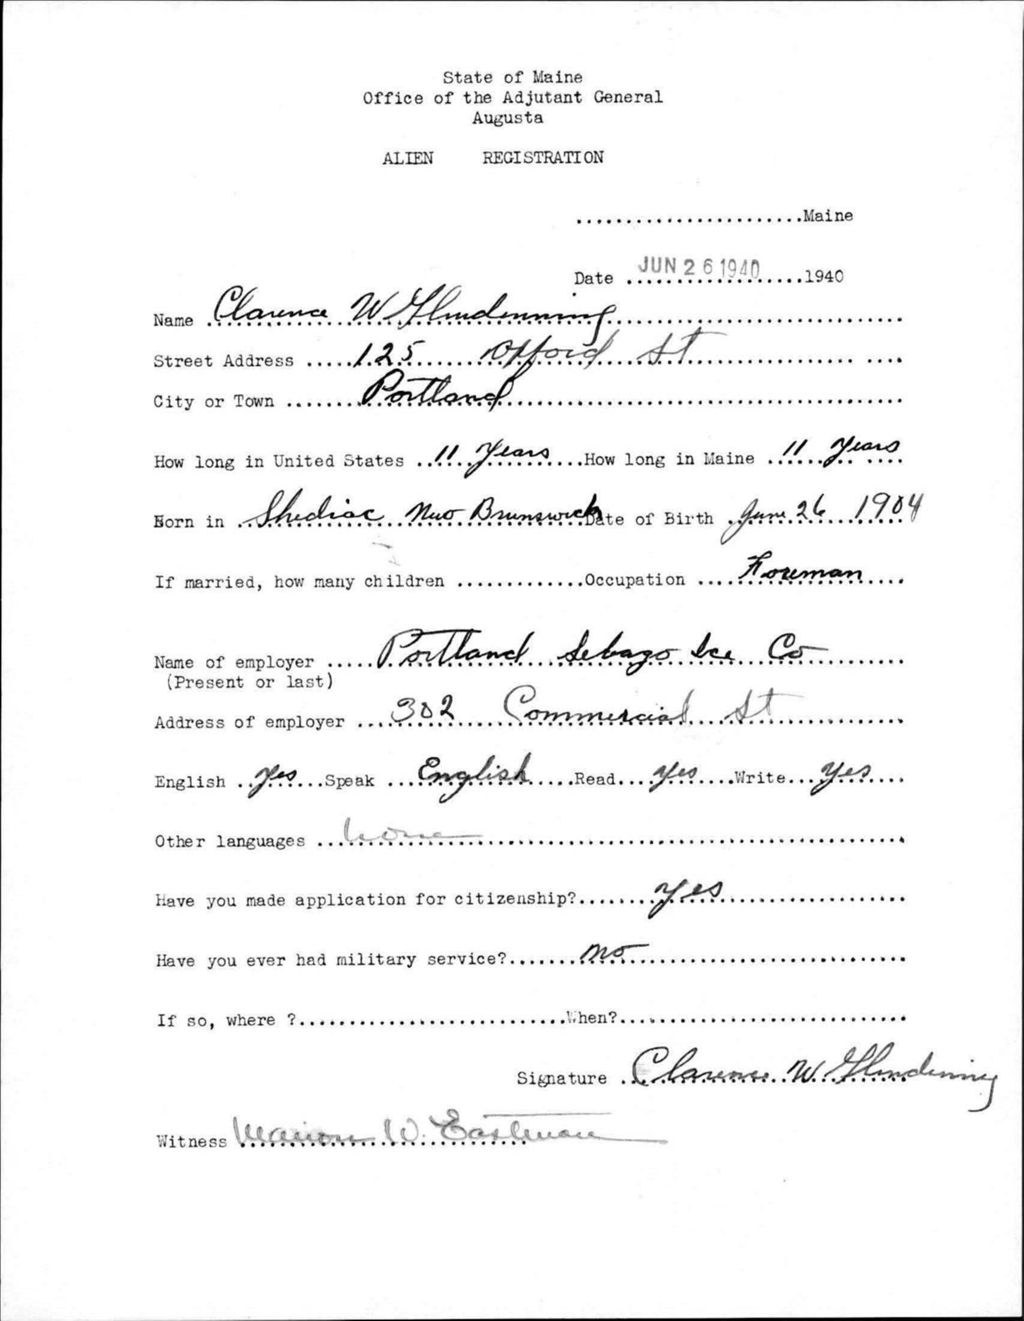 State of Maine
Office of the Adjutant General
Augusta
ALIEN REGISTRATION
.......................Maine
Date JUN 26 1940 ..................1940
Name Clarence W Glendenning
Street Address 125 Oxford St
City or Town Portland
How long in United States 11 Years How long in Maine 11 Years
Born in Shediac New Brunswick Date of Birth June 26 1904
If married, how many children .............Occupation Foreman
Name of employer Portland Sebago Ice Co
(Present or last)
Address of employer 302 Commercial St
English Yes Speak English Read Yes Write Yes
Other languages none
Have you made application for citizenship? Yes
Have you ever had military service? no
If so, where ?...........................When?.............................
Signature Clarence W Glendenning
Witness Marion W. Eastman